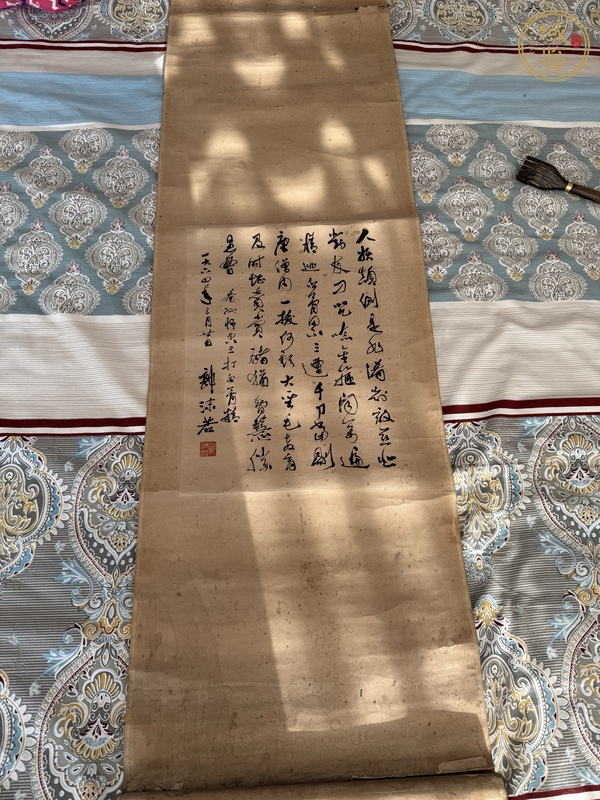 人妖颠倒是非淆對敌慈悲
對友刁咒念金箍闻萬遍
精逃白骨累三遭千刀當剐
唐僧肉一拔何亏大圣毛教育
及时堪赞赏猪犹智慧胜
愚曹 看孙悟空三打白骨精
一九六四年三月廿日 郭沫若